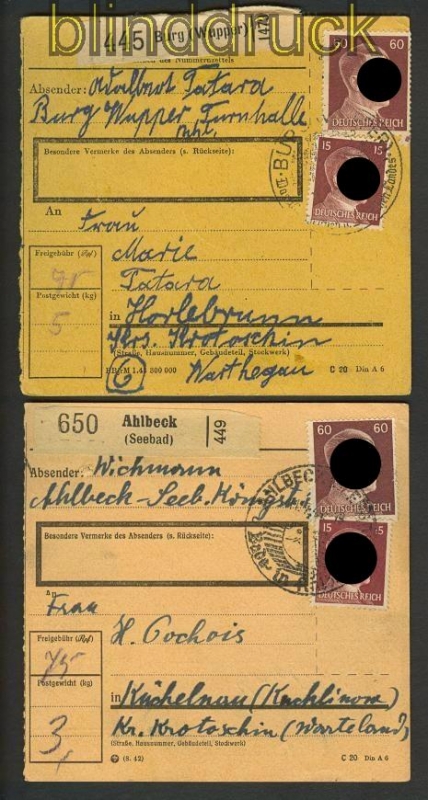 blinddruck.de
445 Burg (Wupper) 447
des Nummernzettels
60 60
DEUTSCHES REICH
Absender: Adalbert Tatara
Burg Wupper Turnhalle
15 15
DEUTSCHES REICH
Besondere Vermerke des Absenders (s. Rückseite):
An
Frau
Marie
Tatara
Freigebühr (Rpf)
75
Postgewicht (kg)
5
in Horlebrunn
Krs. Krotoschin
(Straße, Hausnummer, Gebäudeteil, Stockwerk)
6 Warthegau
C 20 Din A 6
650 Ahlbeck
(Seebad) 449
60 60
DEUTSCHES REICH
Absender: Wichmann
Ahlbeck-Seeb.
15 15
DEUTSCHES REICH
Besondere Vermerke des Absenders (s. Rückseite):
An
Frau
H. Cochois
Freigebühr (Rpf)
75
Postgewicht (kg)
3
in Küchelnau (Kuchlinova)
Kr. Krotoschin (Warteland)
(Straße, Hausnummer, Gebäudeteil, Stockwerk)
(8. 42) C 20 Din A 6